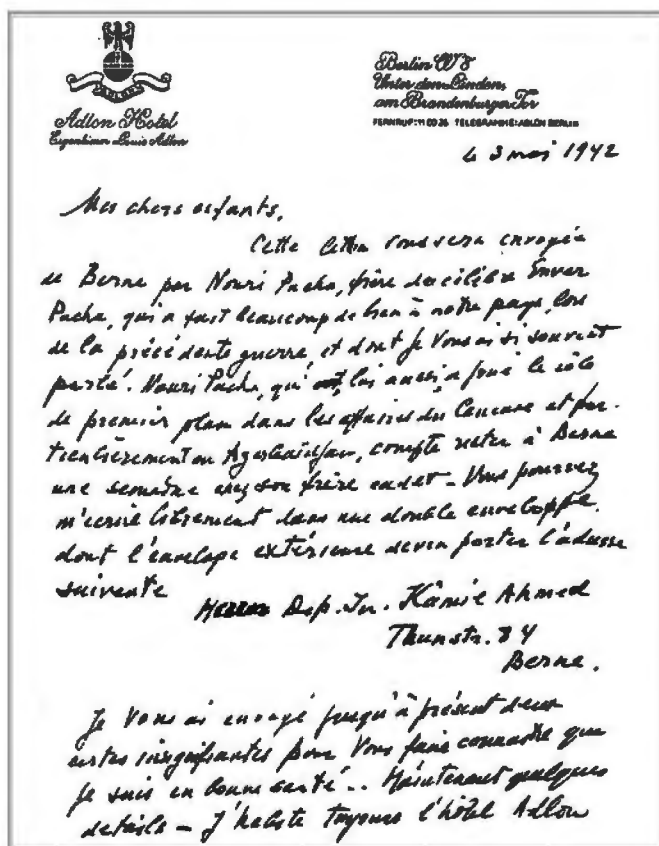 ADLON
Adlon Hotel
Eigentümer Louis Adlon
Berlin W 8
Unter den Linden,
am Brandenburger Tor
FERNRUF: 11 00 26 TELEGRAMME: ADLON BERLIN
le 3 mai 1942
Mes chers enfants,
Cette lettre vous sera envoyée
de Berne par Nouri Pacha, frère du célèbre Enver
Pacha, qui a fait beaucoup de bien à notre pays, lors
de la précédente guerre, et dont je Vous ai si souvent
parlé. Nouri Pacha, qui lui aussi a joué le rôle
de premier plan dans les affaires du Caucase et par-
ticulièrement en Azerbaïdjan, compte rester à Berne
une semaine chez son frère cadet - Vous pourrez
m'écrire librement dans une double enveloppe.
dont l'envelope extérieure devra porter l'adresse
suivante
Herrn Dip. In. Kâmil Ahmed
Thunstr. 84
Berne.
Je Vous ai envoyé jusqu'à présent deux
cartes insignifiantes pour Vous faire connaître que
je suis en bonne santé.. Maintenant quelques
details - J'habite toujours l'hôtel Adlon